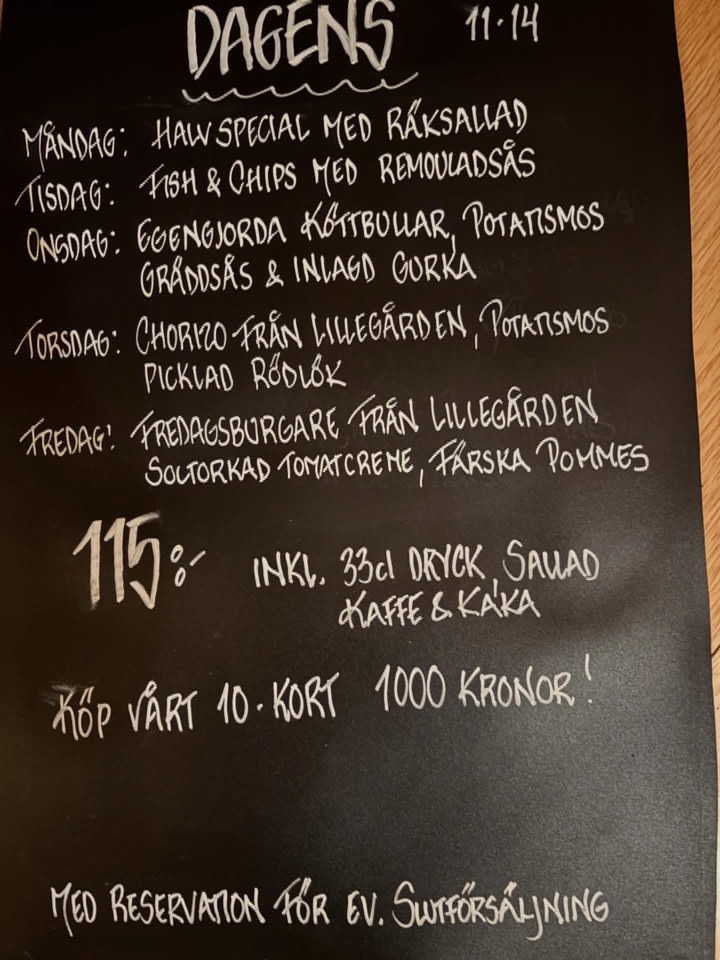 DAGENS 11-14
MÅNDAG: HALV SPECIAL MED RÄKSALLAD
TISDAG: FISH & CHIPS MED REMOULADSÅS
ONSDAG: EGENGJORDA KÖTTBULLAR, POTATISMOS
GRÄDDSÅS & INLAGD GURKA
TORSDAG: CHORIZO FRÅN LILLEGÅRDEN, POTATISMOS
PICKLAD RÖDLÖK
FREDAG: FREDAGSBURGARE FRÅN LILLEGÅRDEN
SOLTORKAD TOMATCREME, FÄRSKA POMMES
115:- INKL. 33cl DRYCK, SALLAD
KAFFE & KAKA
KÖP VÅRT 10-KORT 1000 KRONOR!
MED RESERVATION FÖR EV. SLUTFÖRSÄLJNING